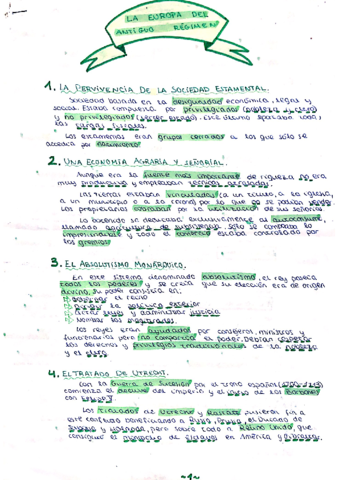 LA EUROPA DEL
ANTIGUO RÉGIMEN
1. LA PERVIVENCIA DE LA SOCIEDAD ESTAMENTAL.
Sociedad basada en la desigualdad económica, legal y
social. Estaba compuesta por privilegiados (nobleza y clero)
y no privilegiados (tercer estado). Este último pagaba todas
las cargas fiscales.
Los estamentos eran grupos cerrados a los que sólo se
accedía por nacimiento
2. UNA ECONOMÍA AGRARIA Y SEÑORIAL.
Aunque era la fuente más importante de riqueza no era
muy productiva y empleaban técnicas atrasadas.
Las tierras estaban vinculadas a un título, a la iglesia,
a un municipio o a la corona, por lo que no se podían vender
Los propietarios por la de sus señoríos
La se dedicaba exclusivamente al autoconsumo,
llamado de subsistencia. Sólo se compraba lo
imprescindible y todo el comercio estaba controlado por
los gremios
3. EL ABSOLUTISMO MONÁRQUICO.
En este sistema denominado absolutismo, el rey poseía
todos los poderes y se creía que su elección era de origen
divino. Su poder consistía en:
el reino
la política exterior
leyes y administrar justicia
Nombrar los
Los reyes eran ayudados por consejeros, ministros y
funcionarios pero no compartían el poder. Debían respetar
los derechos y privilegios tradicionales de la nobleza
y el clero
4. EL TRATADO DE UTRECHT.
Con la Guerra de Sucesión por el trono español
comienza el declive del imperio y el de los Borbones
con
Los tratados de Utrecht y Rastatt pusieron fin a
este conflicto beneficiando a el Ducado de
Saboya y Holanda, pero sobre todo a Reino Unido, que
consigue el monopolio de en América y Gibraltar.
~1~